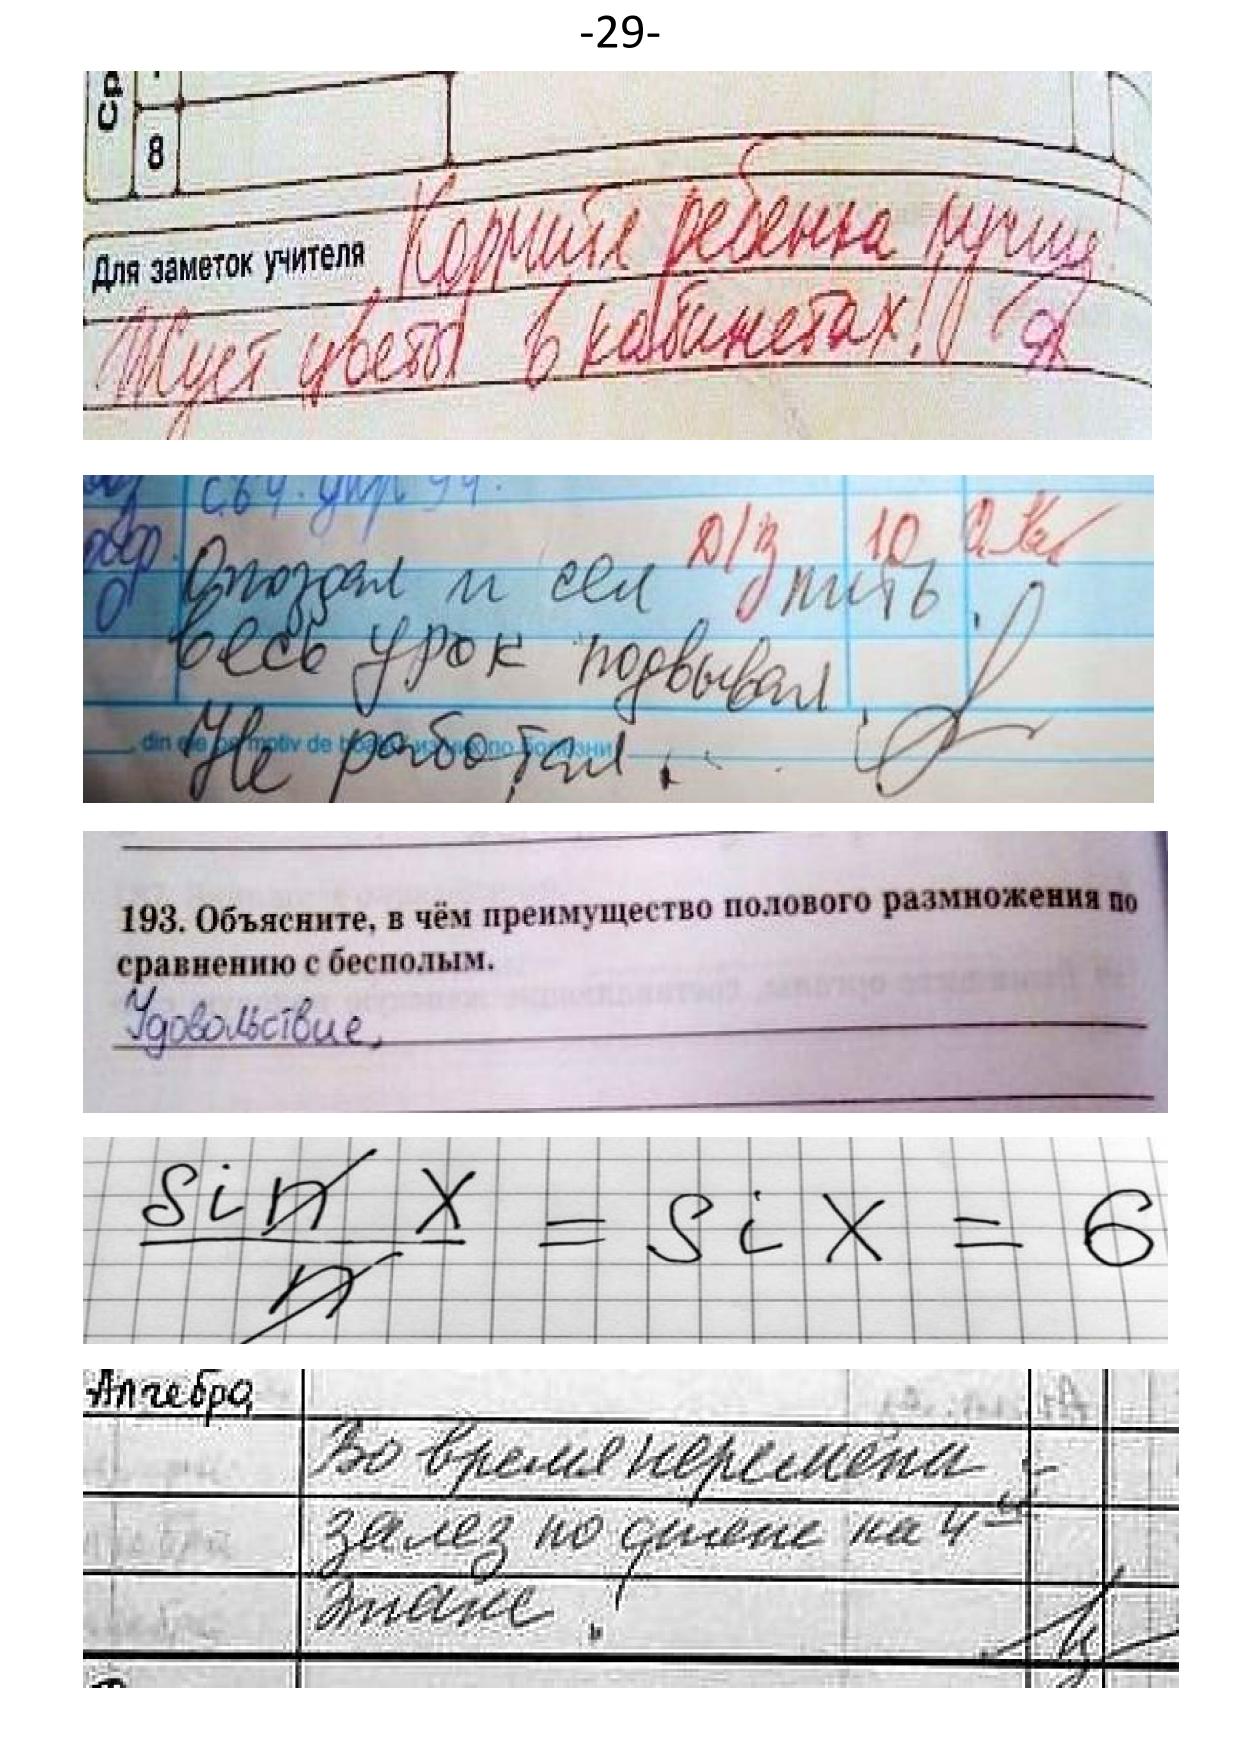 -29-
Ср
8
Для заметок учителя Кормите ребенка лучше!
Жует цветы в кабинетах!
с.64. упр 94.
Д/З 10
Опоздал и сел пить.
весь урок подвывал.
Не работал.
din ele pe motiv de boală/из них по болезни
193. Объясните, в чём преимущество полового размножения по
сравнению с бесполым.
Удовольствие,
sin x / n = six = 6
Алгебра
Во время перемены
залез по стене на 4ый
этаж.